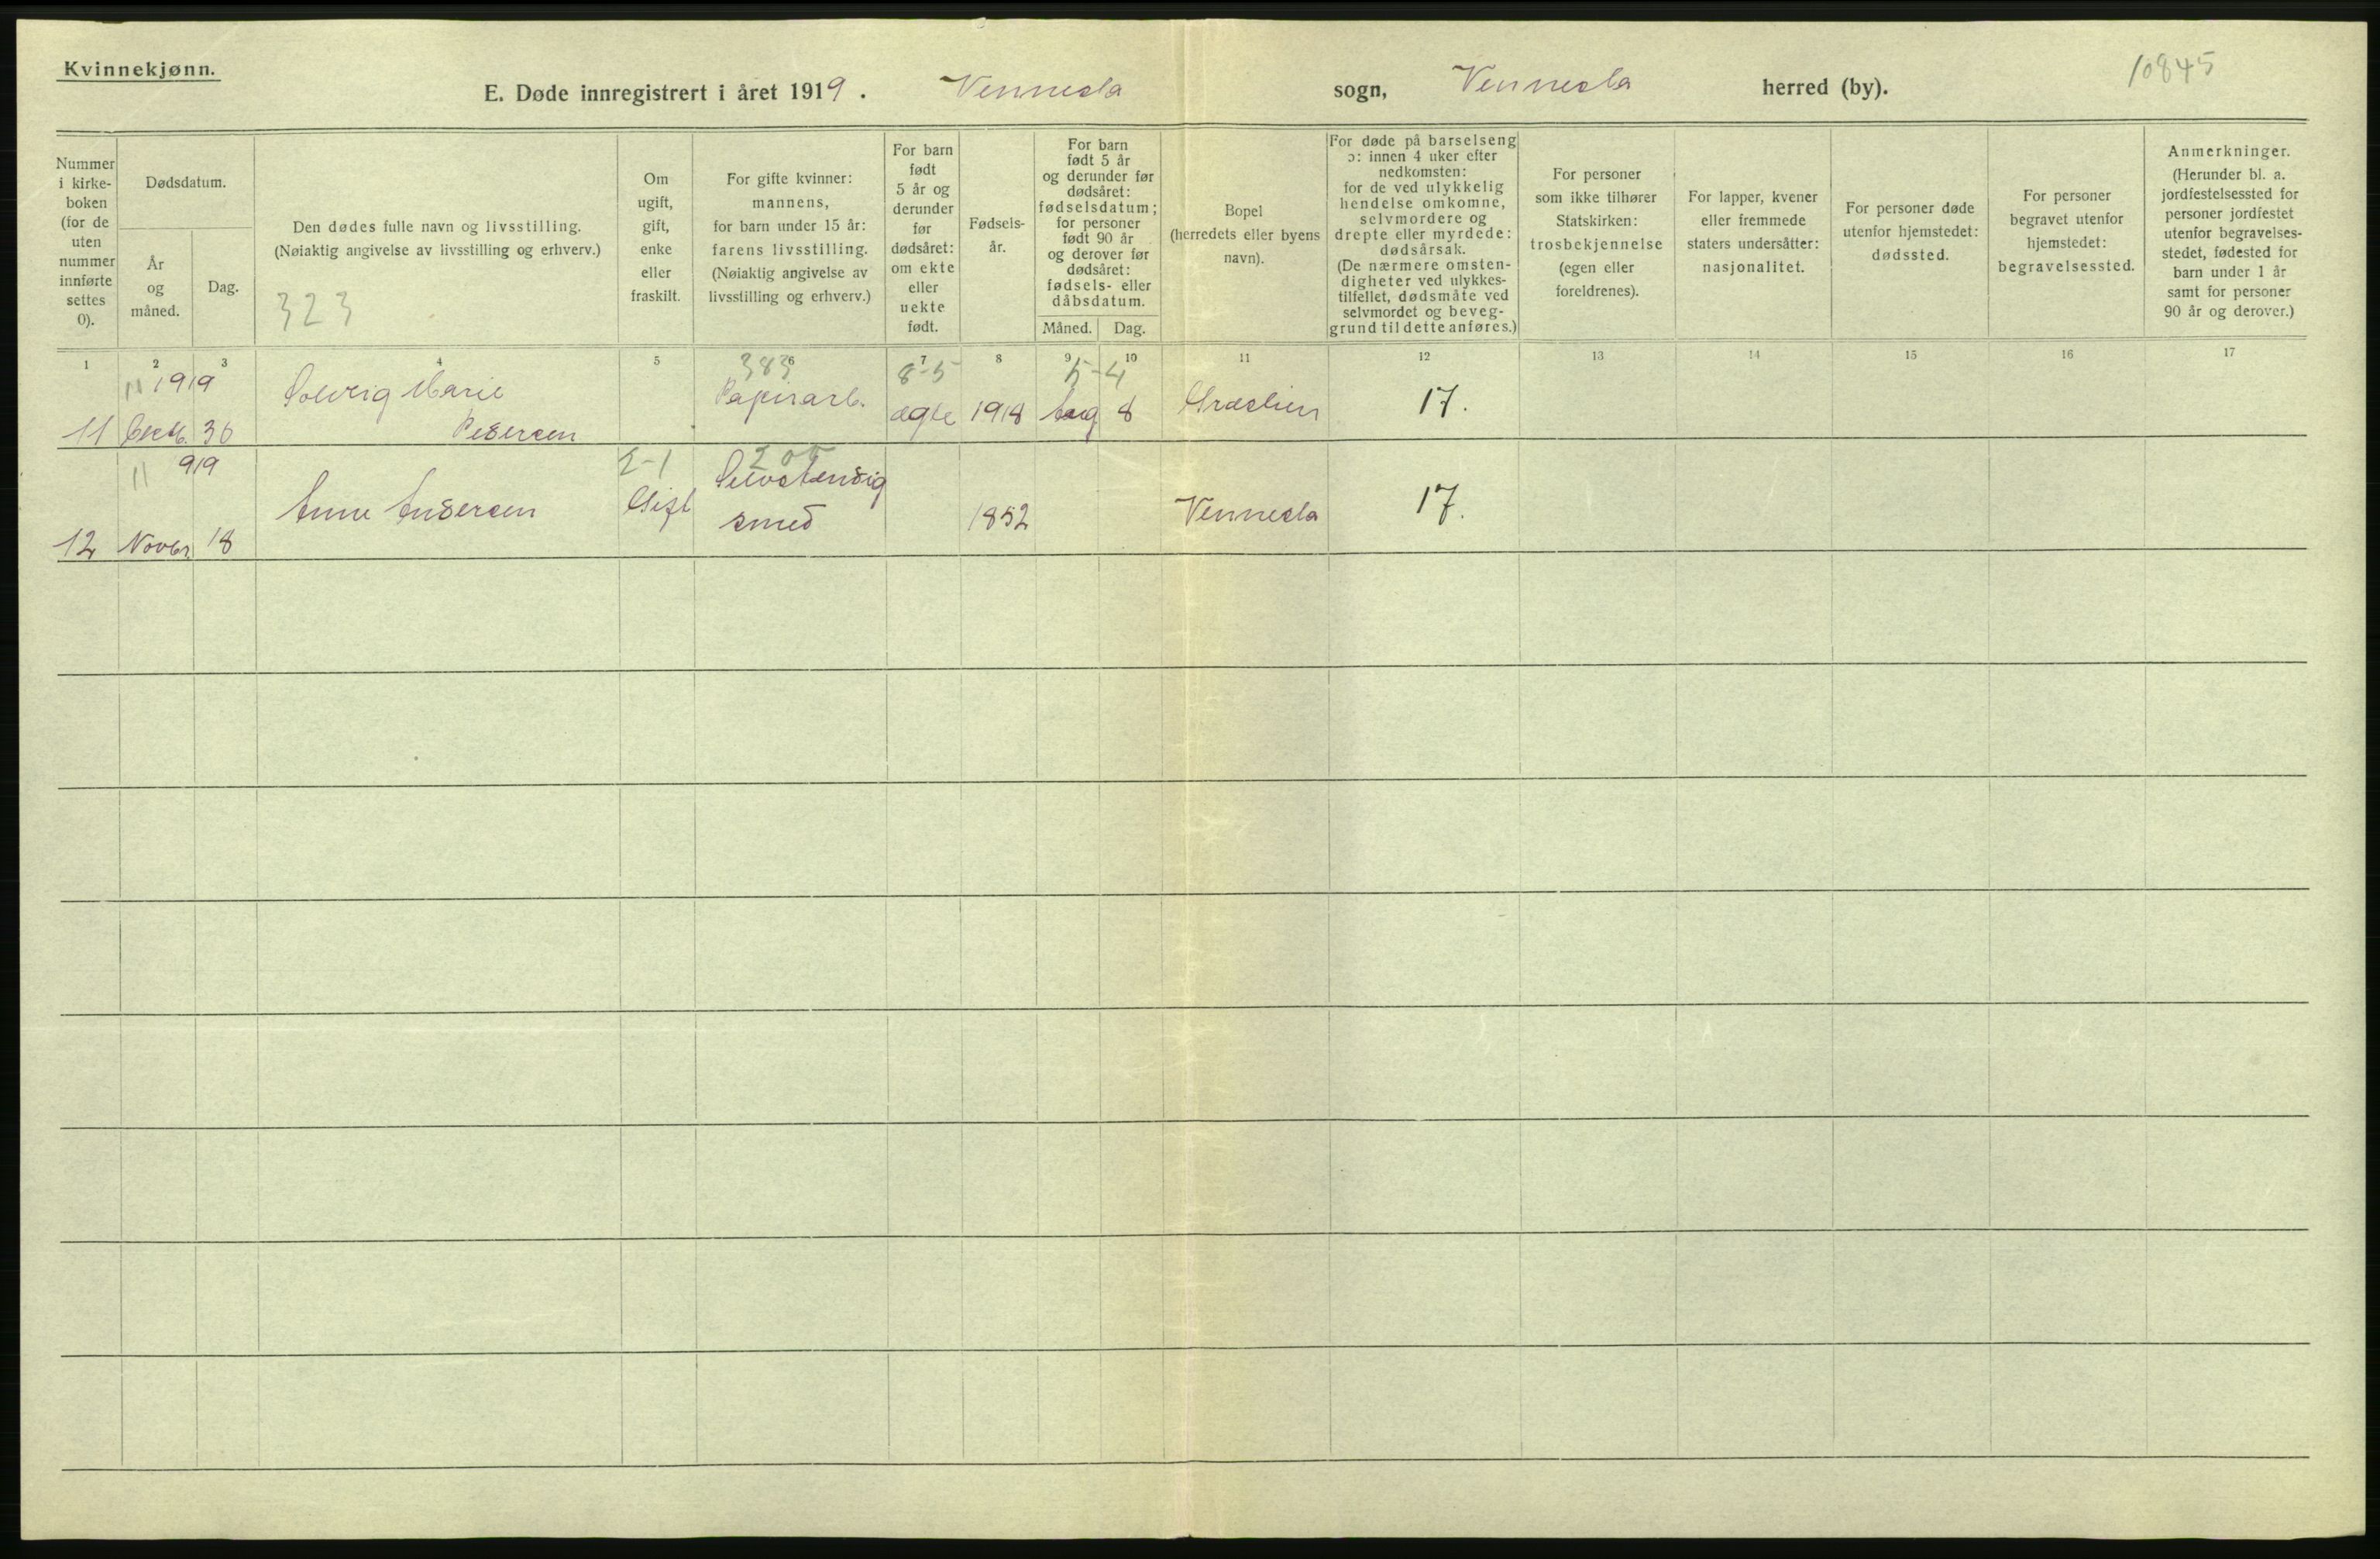 Kvinnekjønn.
E. Døde innregistrert i året 1919. Vennesla sogn, Vennesla herred (by).
10845
Nummer
i kirke-
boken
(for de
uten
nummer
innførte
settes
0).
Dødsdatum.
År
og
måned.
Dag.
Den dødes fulle navn og livsstilling.
(Nøiaktig angivelse av livsstilling og erhverv.)
323
Om
ugift,
gift,
enke
eller
fraskilt.
For gifte kvinner:
mannens,
for barn under 15 år:
farens livsstilling.
(Nøiaktig angivelse av
livsstilling og erhverv.)
For barn
født
5 år og
derunder
før
dødsåret:
om ekte
eller
uekte
født.
Fødsels-
år.
For barn
født 5 år
og derunder før
dødsåret:
fødselsdatum;
for personer
født 90 år
og derover før
dødsåret:
fødsels- eller
dåbsdatum.
Måned. Dag.
Bopel
(herredets eller byens
navn).
For døde på barselseng
ɔ: innen 4 uker efter
nedkomsten:
for de ved ulykkelig
hendelse omkomne,
selvmordere og
drepte eller myrdede:
dødsårsak.
(De nærmere omsten-
digheter ved ulykkes-
tilfellet, dødsmåte ved
selvmordet og beveg-
grund til dette anføres.)
For personer
som ikke tilhører
Statskirken:
trosbekjennelse
(egen eller
foreldrenes).
For lapper, kvener
eller fremmede
staters undersåtter:
nasjonalitet.
For personer døde
utenfor hjemstedet:
dødssted.
For personer
begravet utenfor
hjemstedet:
begravelsessted.
Anmerkninger.
(Herunder bl. a.
jordfestelsessted for
personer jordfestet
utenfor begravelses-
stedet, fødested for
barn under 1 år
samt for personer
90 år og derover.)
1 2 3 4 5 6 7 8 9 10 11 12 13 14 15 16 17
11 1919 383 8-5 5-4
Solveig Marie Papirarb.
11 30 Pedersen ægte 1918 Aug 8 17.
11 919 2-1 200
Selvstendig
12 Novbr. 18 Anne Andersen Gift smed 1852 Vennesla 17.